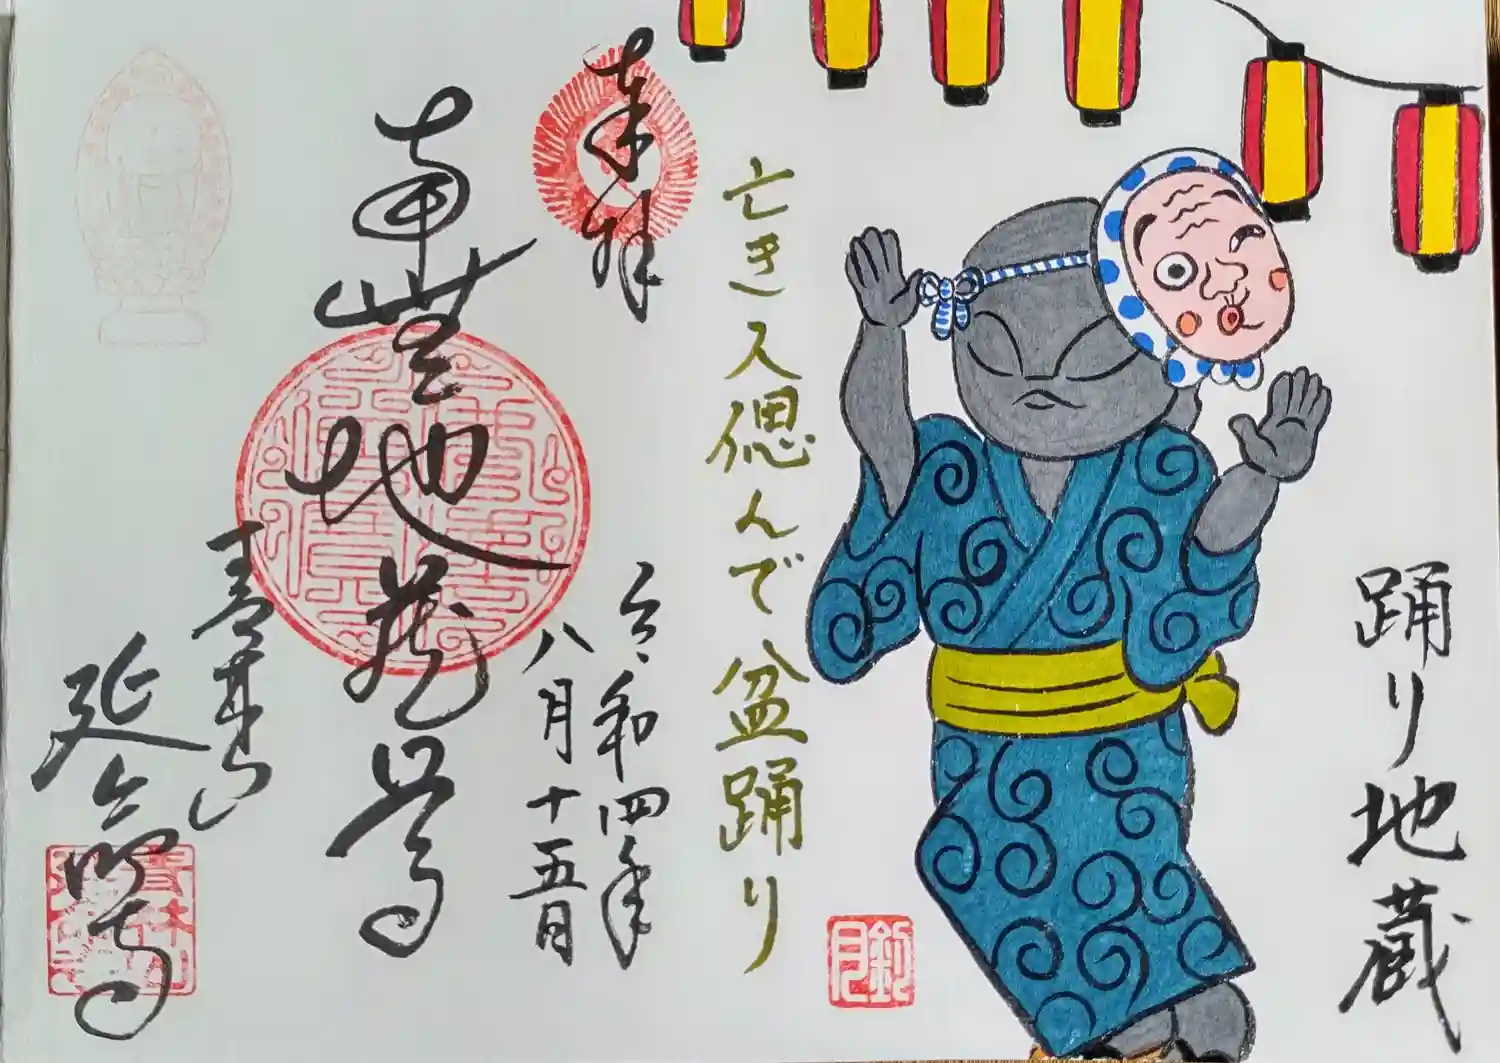 踊り地蔵
亡き人偲んで盆踊り
奉拝
令和四年
八月十五日
南無地蔵尊
寿井山
延命寺
釣月